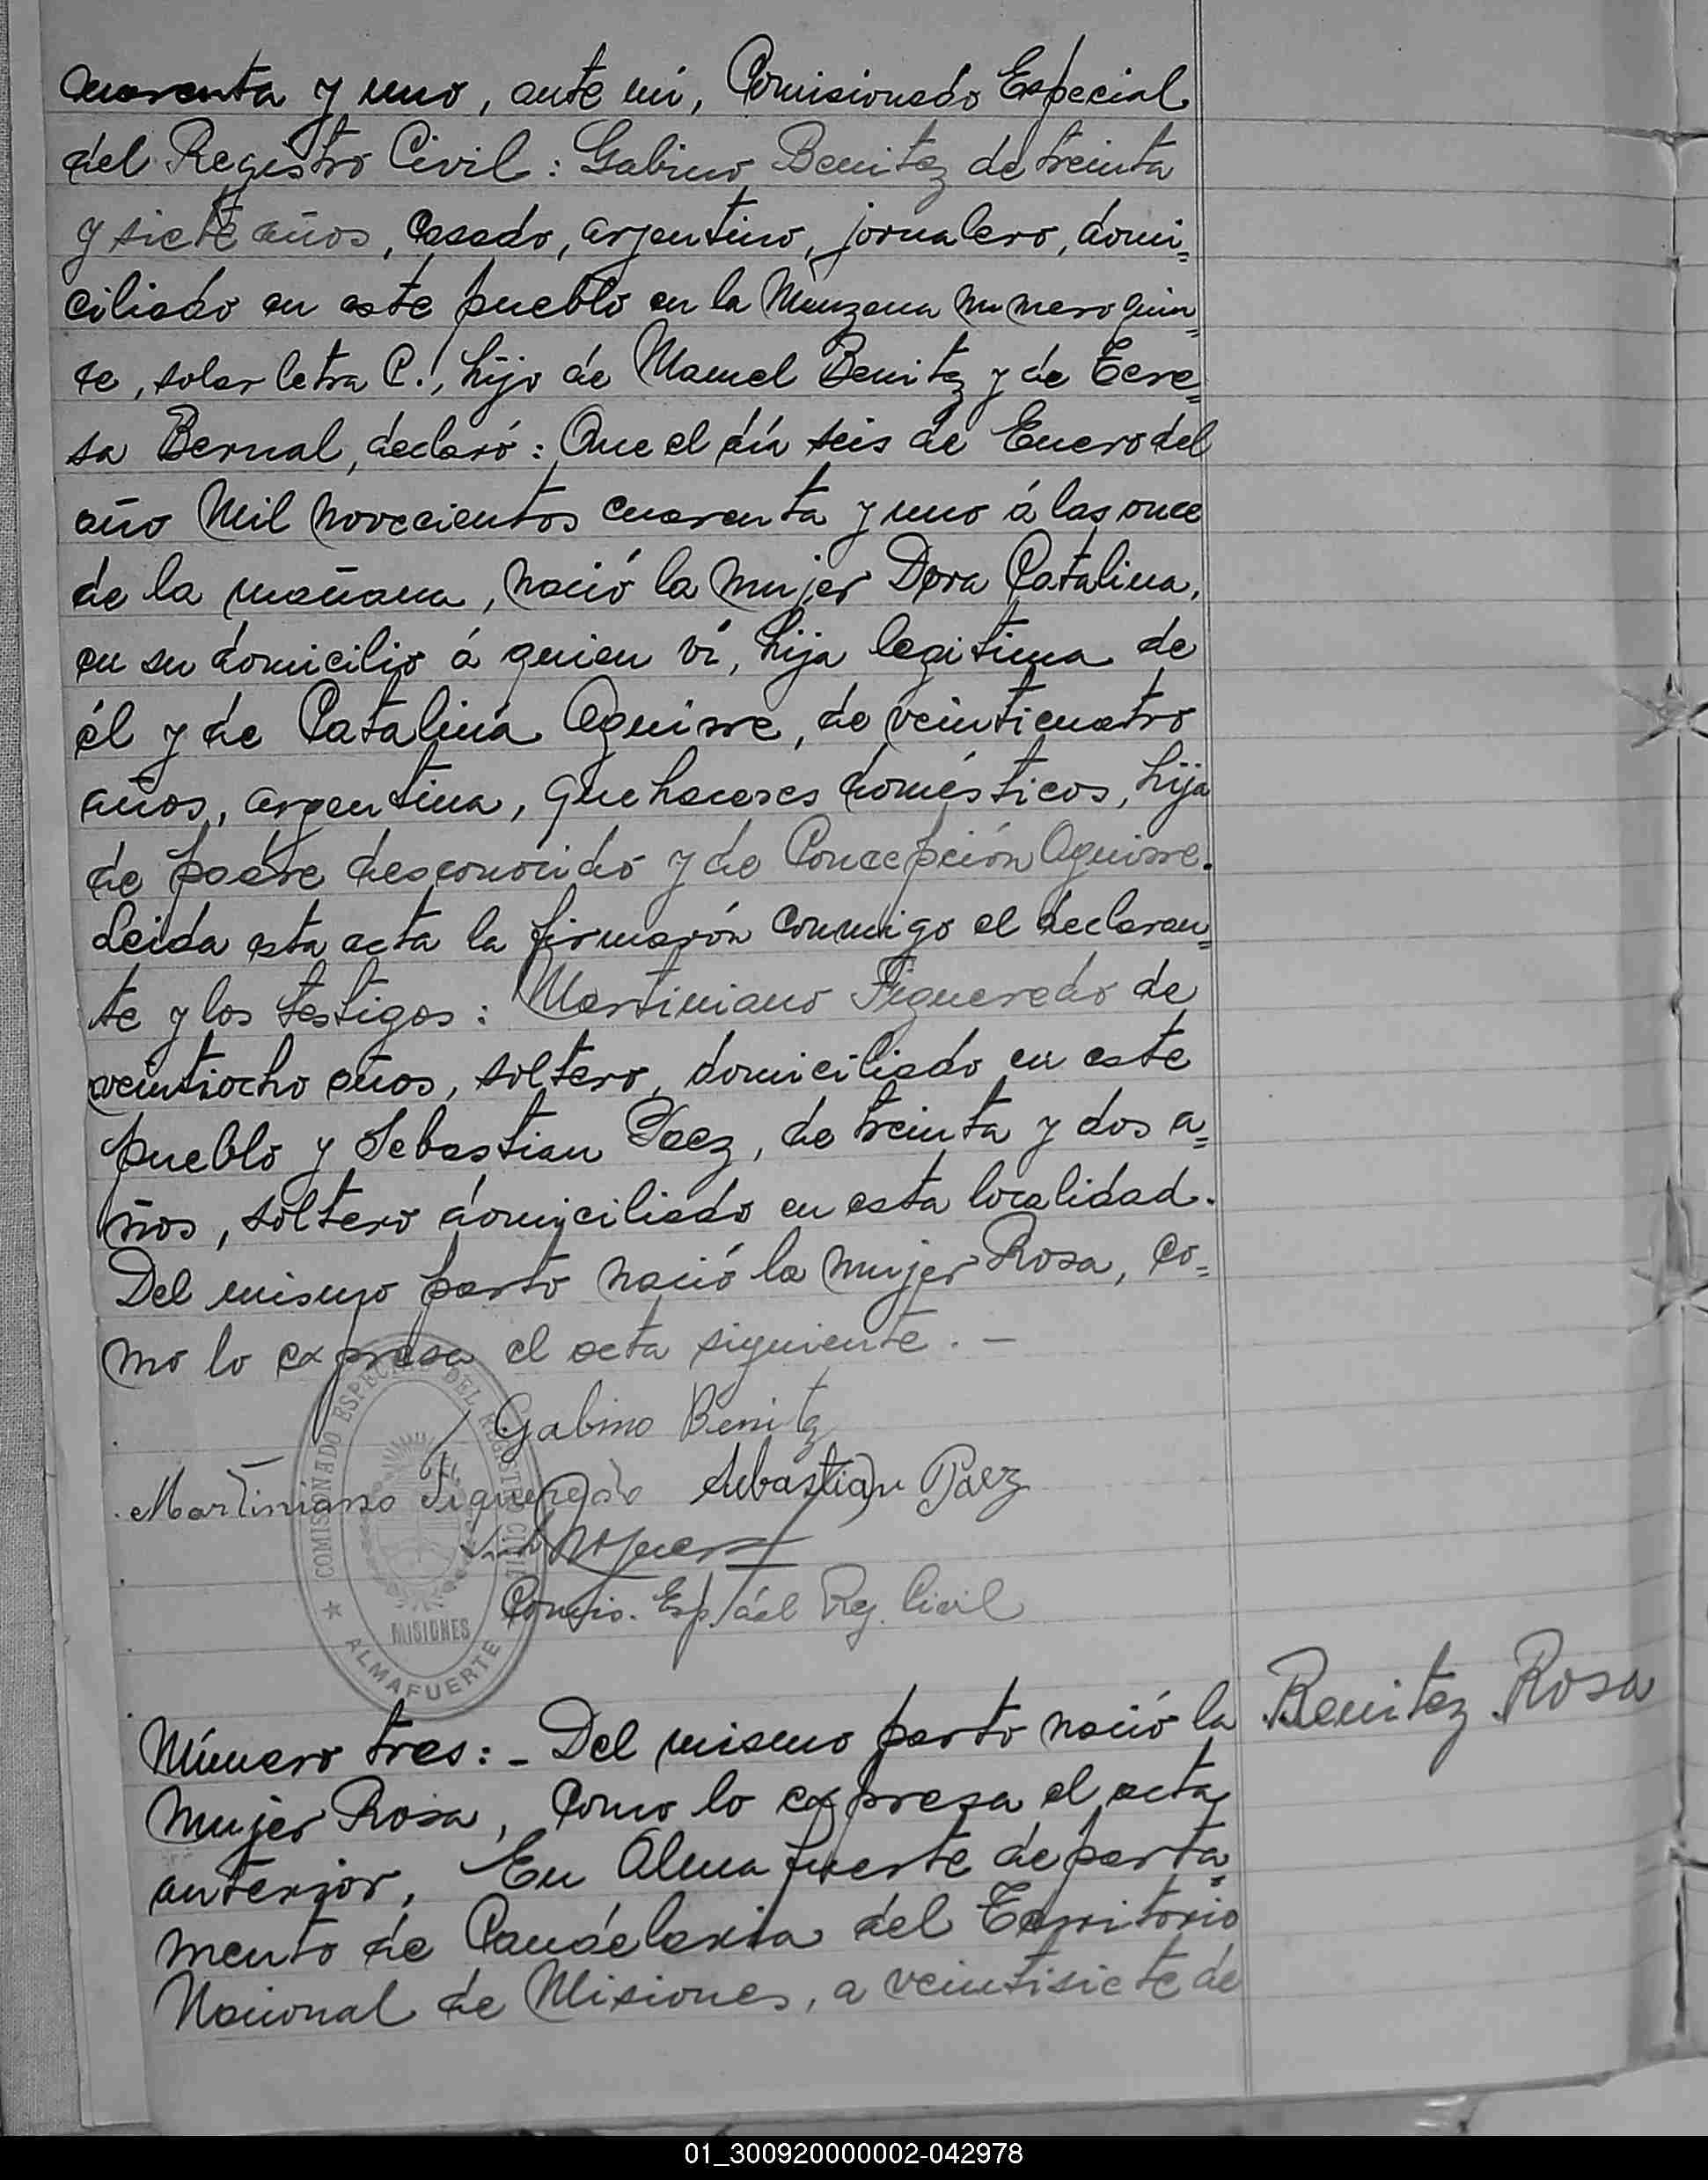 cuarenta y uno, ante mí, Comisionado Especial
del Registro Civil: Gabino Benitez de treinta
y siete años, casado, argentino, jornalero, domi=
ciliado en este pueblo en la Manzana número quin=
ce, solar letra C., hijo de Manuel Benitez y de Tere=
sa Bernal, declaró: Que el día seis de Enero del
año Mil novecientos cuarenta y uno á las once
de la mañana, nació la mujer Dora Catalina,
en su domicilio á quien ví, hija legitima de
él y de Catalina Aguirre, de veinticuatro
años, argentina, quehaceres domésticos, hija
de padre desconocido y de Concepción Aguirre.
Leida esta acta la firmarón conmigo el declaran=
te y los testigos: Martiniano Figueredo de
veintiocho años, soltero, domiciliado en este
pueblo y Sebastian Paez, de treinta y dos a=
ños, soltero domiciliado en esta localidad.
Del mismo parto nació la mujer Rosa, co=
mo lo expresa el acta siguiente. —
Gabino Benitz
Martiniano Figueredo Sebastian Paez
Comis. Esp. del Reg. Civil
COMISIONADO ESPECIAL DEL REGISTRO CIVIL
MISIONES
★ ALMAFUERTE
Benitez Rosa
Número tres: - Del mismo parto nació la
mujer Rosa, como lo expresa el acta
anterior, En Almafuerte departa=
mento de Candelaria del Territorio
Nacional de Misiones, a veintisiete de
01_300920000002-042978